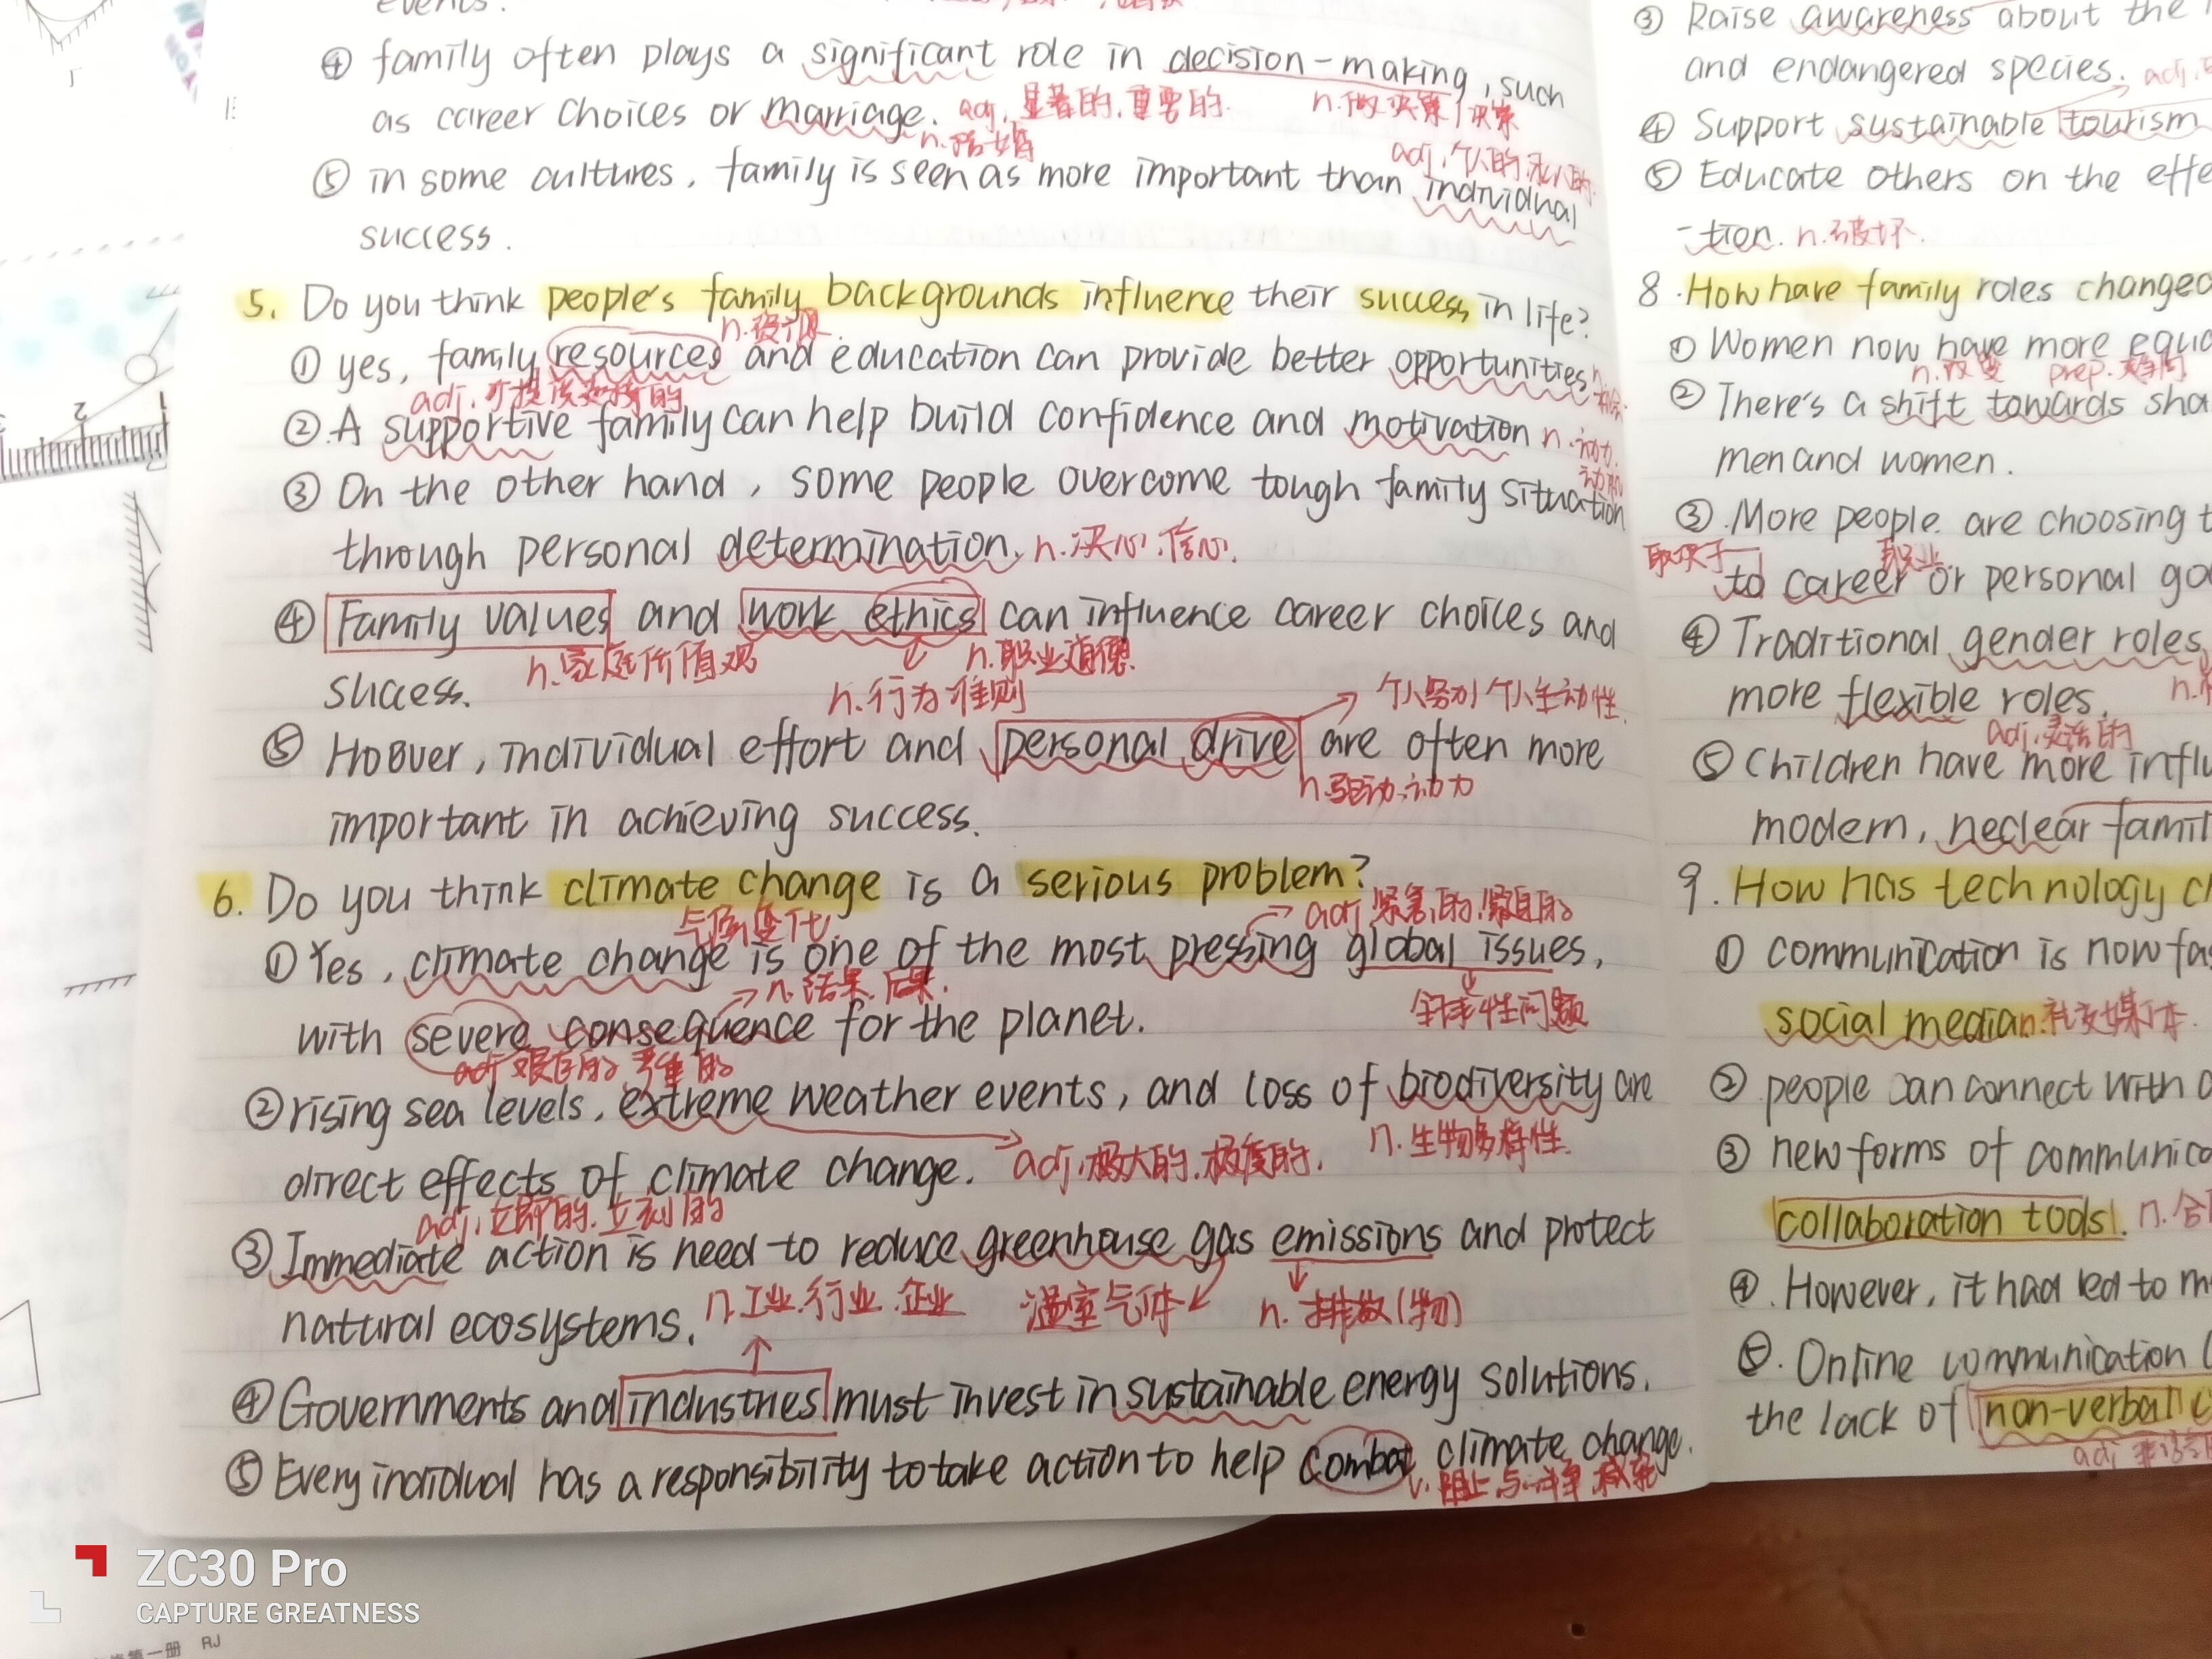 events.
④ family often plays a significant role in decision-making, such
adj. 显著的.重要的. n.做决策/决策
as career choices or marriage.
n.结婚
adj.个人的
⑤ in some cultures, family is seen as more important than individual
success.
5. Do you think people's family backgrounds influence their success in life?
① yes, family resources and education can provide better opportunities.
② A supportive family can help build confidence and motivation n.动力.
③ On the other hand, some people overcome tough family situation
through personal determination. n.决心.信心.
④ Family values and work ethics can influence career choices and
n.家庭价值观 n.职业道德.
success. n.行为准则
个人努力 个人主动性.
⑤ Hoever, individual effort and personal drive are often more
n.驱动.动力
important in achieving success.
6. Do you think climate change is a serious problem?
气候变化.
① Yes, climate change is one of the most pressing global issues,
n.结果.后果. 全球性问题
with severe consequence for the planet.
② rising sea levels, extreme weather events, and loss of biodiversity are
n.生物多样性.
direct effects of climate change. adj.极大的.极度的.
adj.立即的.立刻的
③ Immediate action is need to reduce greenhouse gas emissions and protect
natural ecosystems. n.工业.行业.企业 温室气体 n.排放(物)
④ Governments and industries must invest in sustainable energy solutions.
⑤ Every individual has a responsibility to take action to help combat climate change.
③ Raise awareness about the
and endangered species. adj.
④ Support sustainable tourism
⑤ Educate others on the effe
-tion. n.破坏.
8. How have family roles changed
① Women now have more equa
n.改变 prep.趋向
② There's a shift towards sha
men and women.
③. More people are choosing t
取决于 职业
to career or personal goa
④ Traditional gender roles
more flexible roles.
adj.灵活的
⑤ Children have more influ
modern, neclear famil
9. How has technology ch
① communication is now fas
social media n.社交媒体.
② people can connect with o
③ new forms of communica
collaboration tools. n.合
④. However, it had led to m
⑤. Online communication
the lack of non-verbal c
ZC30 Pro
CAPTURE GREATNESS
第一册 RJ